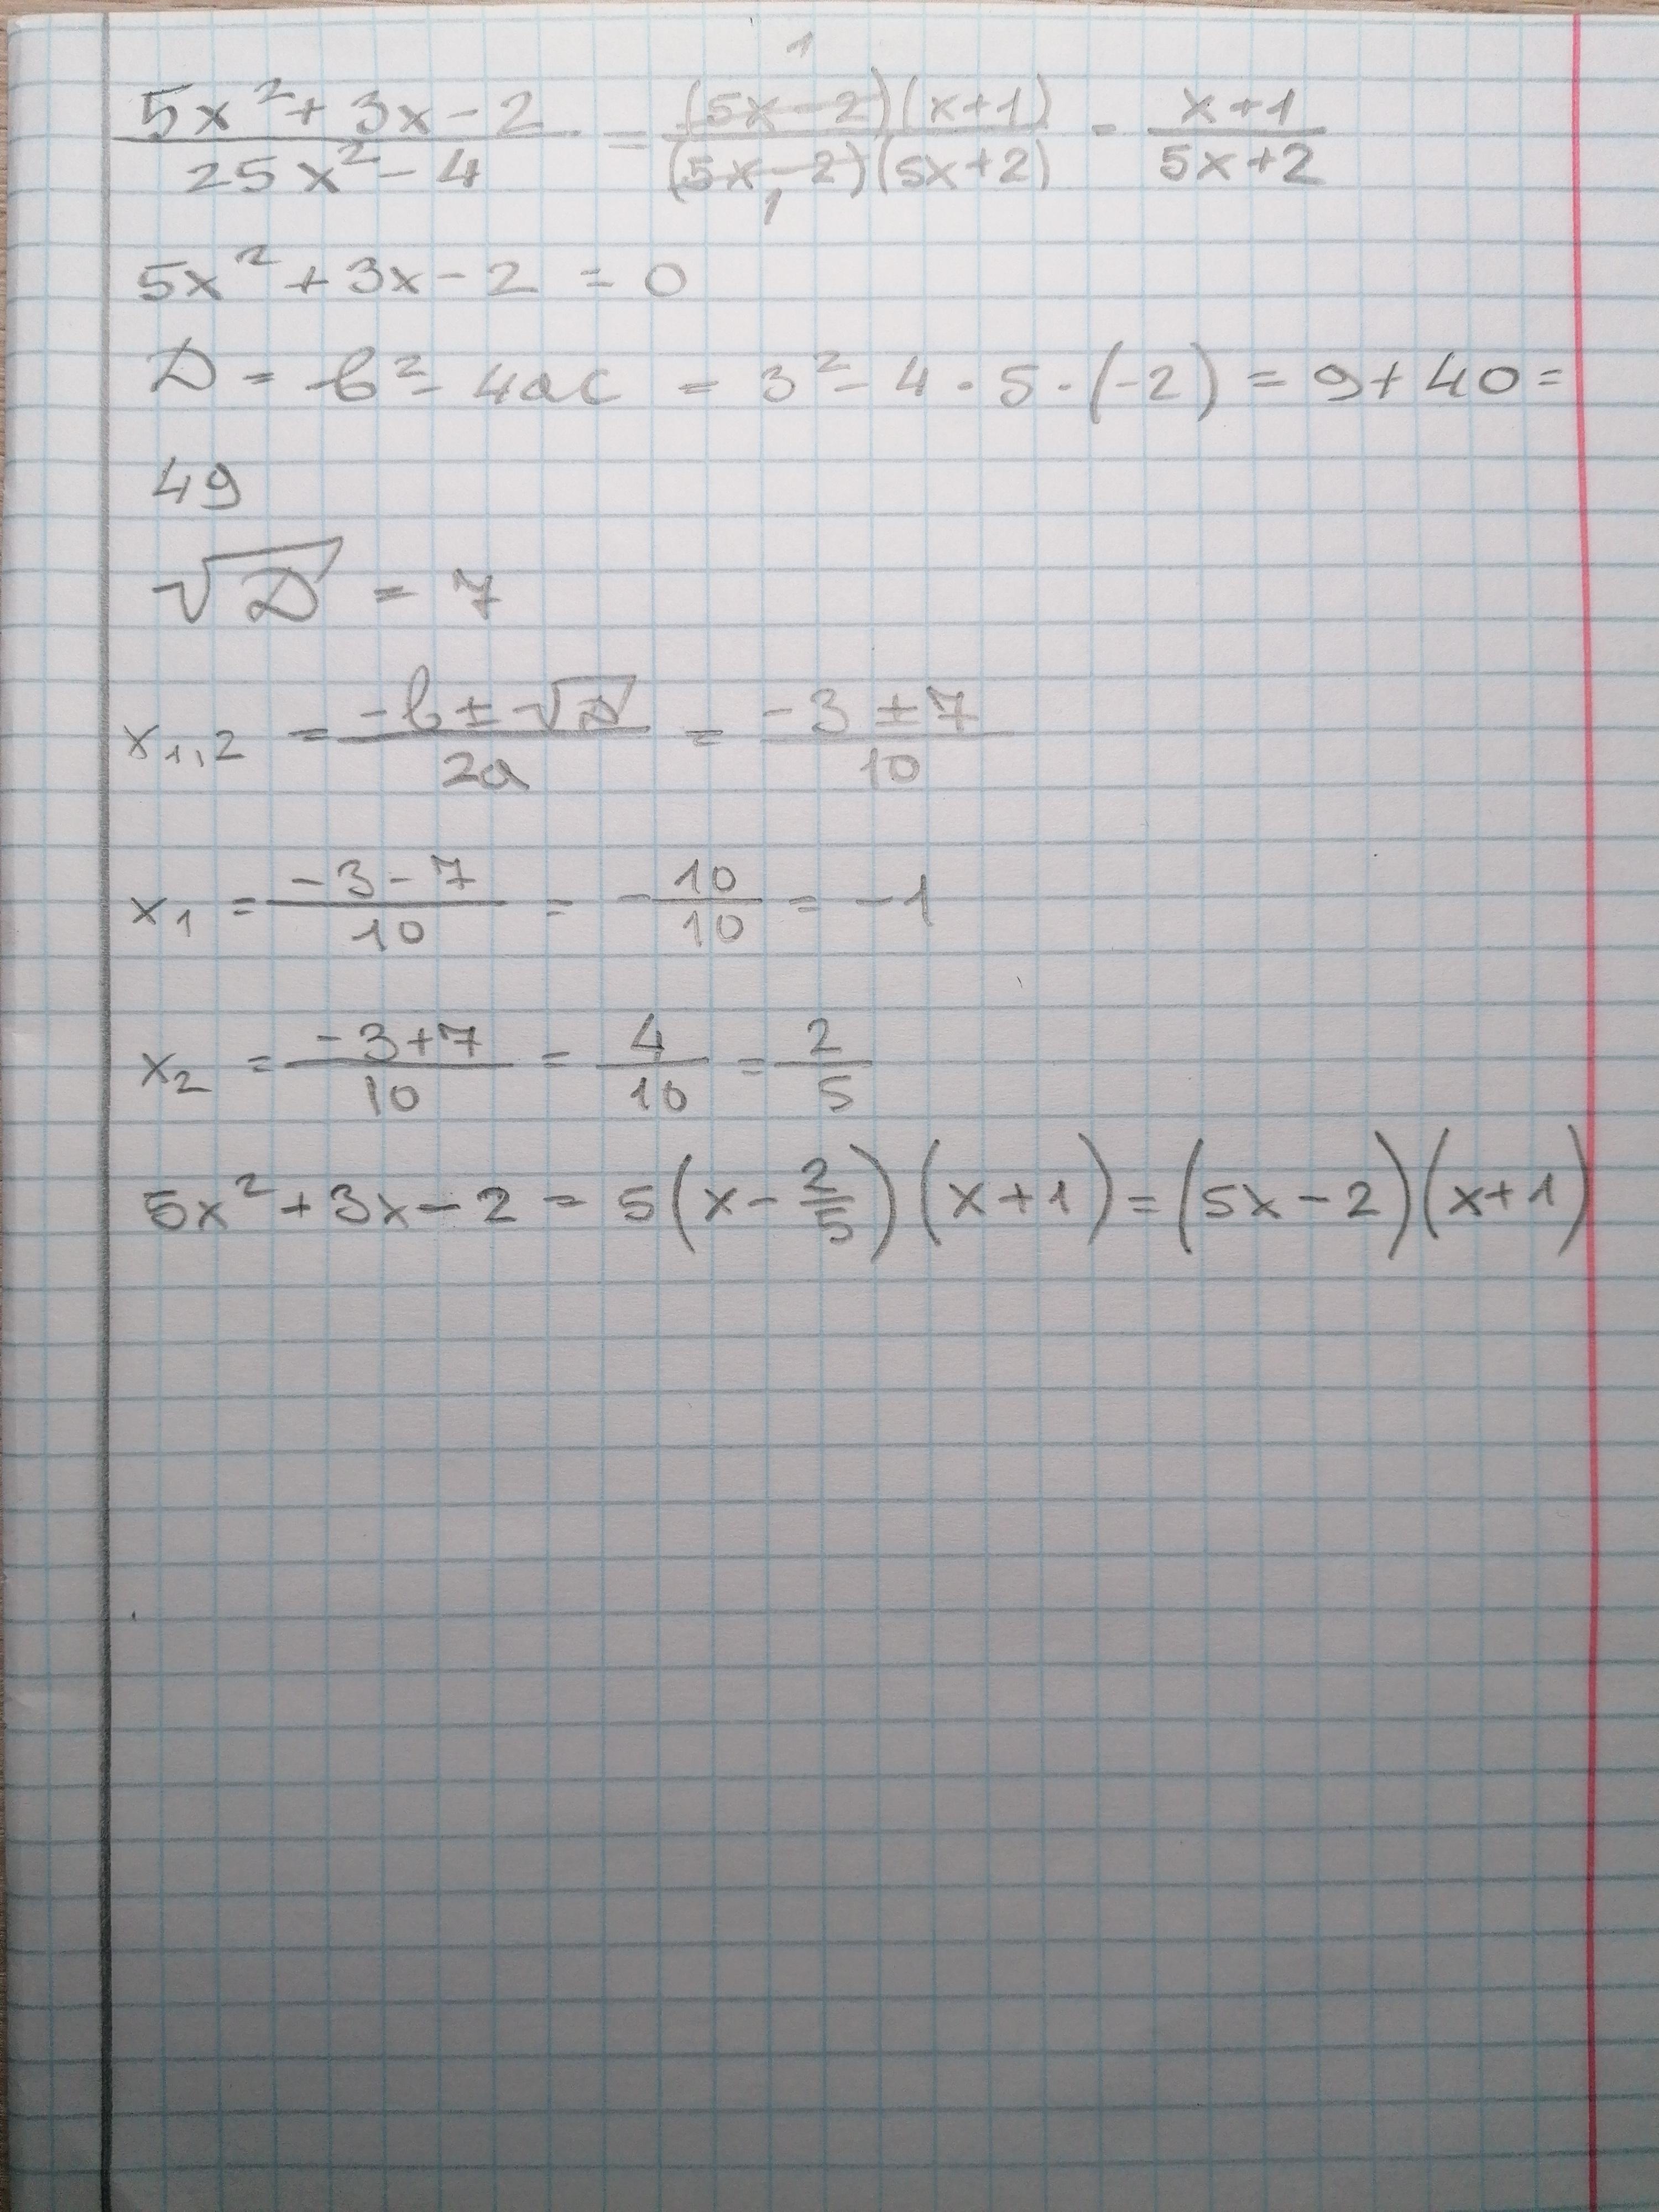 (5x² + 3x - 2)/(25x² - 4) = ((5x - 2)(x+1))/((5x - 2)(5x+2)) = (x+1)/(5x+2)
5x² + 3x - 2 = 0
D = b² - 4ac = 3² - 4 · 5 · (-2) = 9 + 40 =
49
√D = 7
x₁,₂ = (-b ± √D)/(2a) = (-3 ± 7)/10
x₁ = (-3 - 7)/10 = -10/10 = -1
x₂ = (-3+7)/10 = 4/10 = 2/5
5x² + 3x - 2 = 5(x - 2/5)(x+1) = (5x - 2)(x+1)